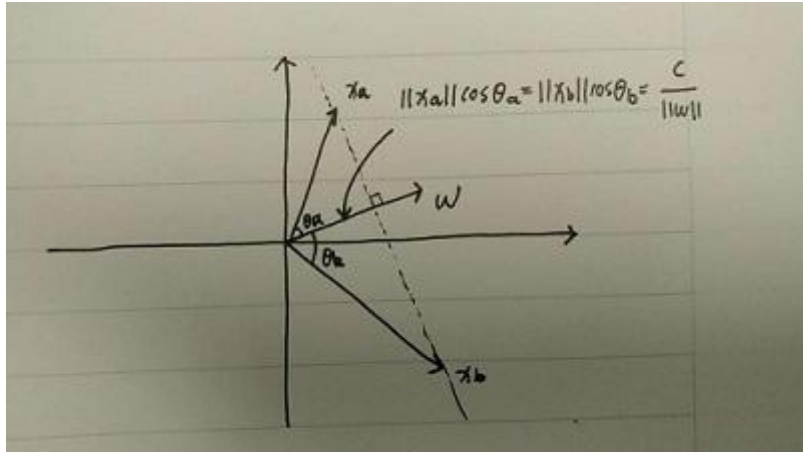 xa
||xa||cosθa=||xb||cosθb= c/||w||
θa
w
θb
xb